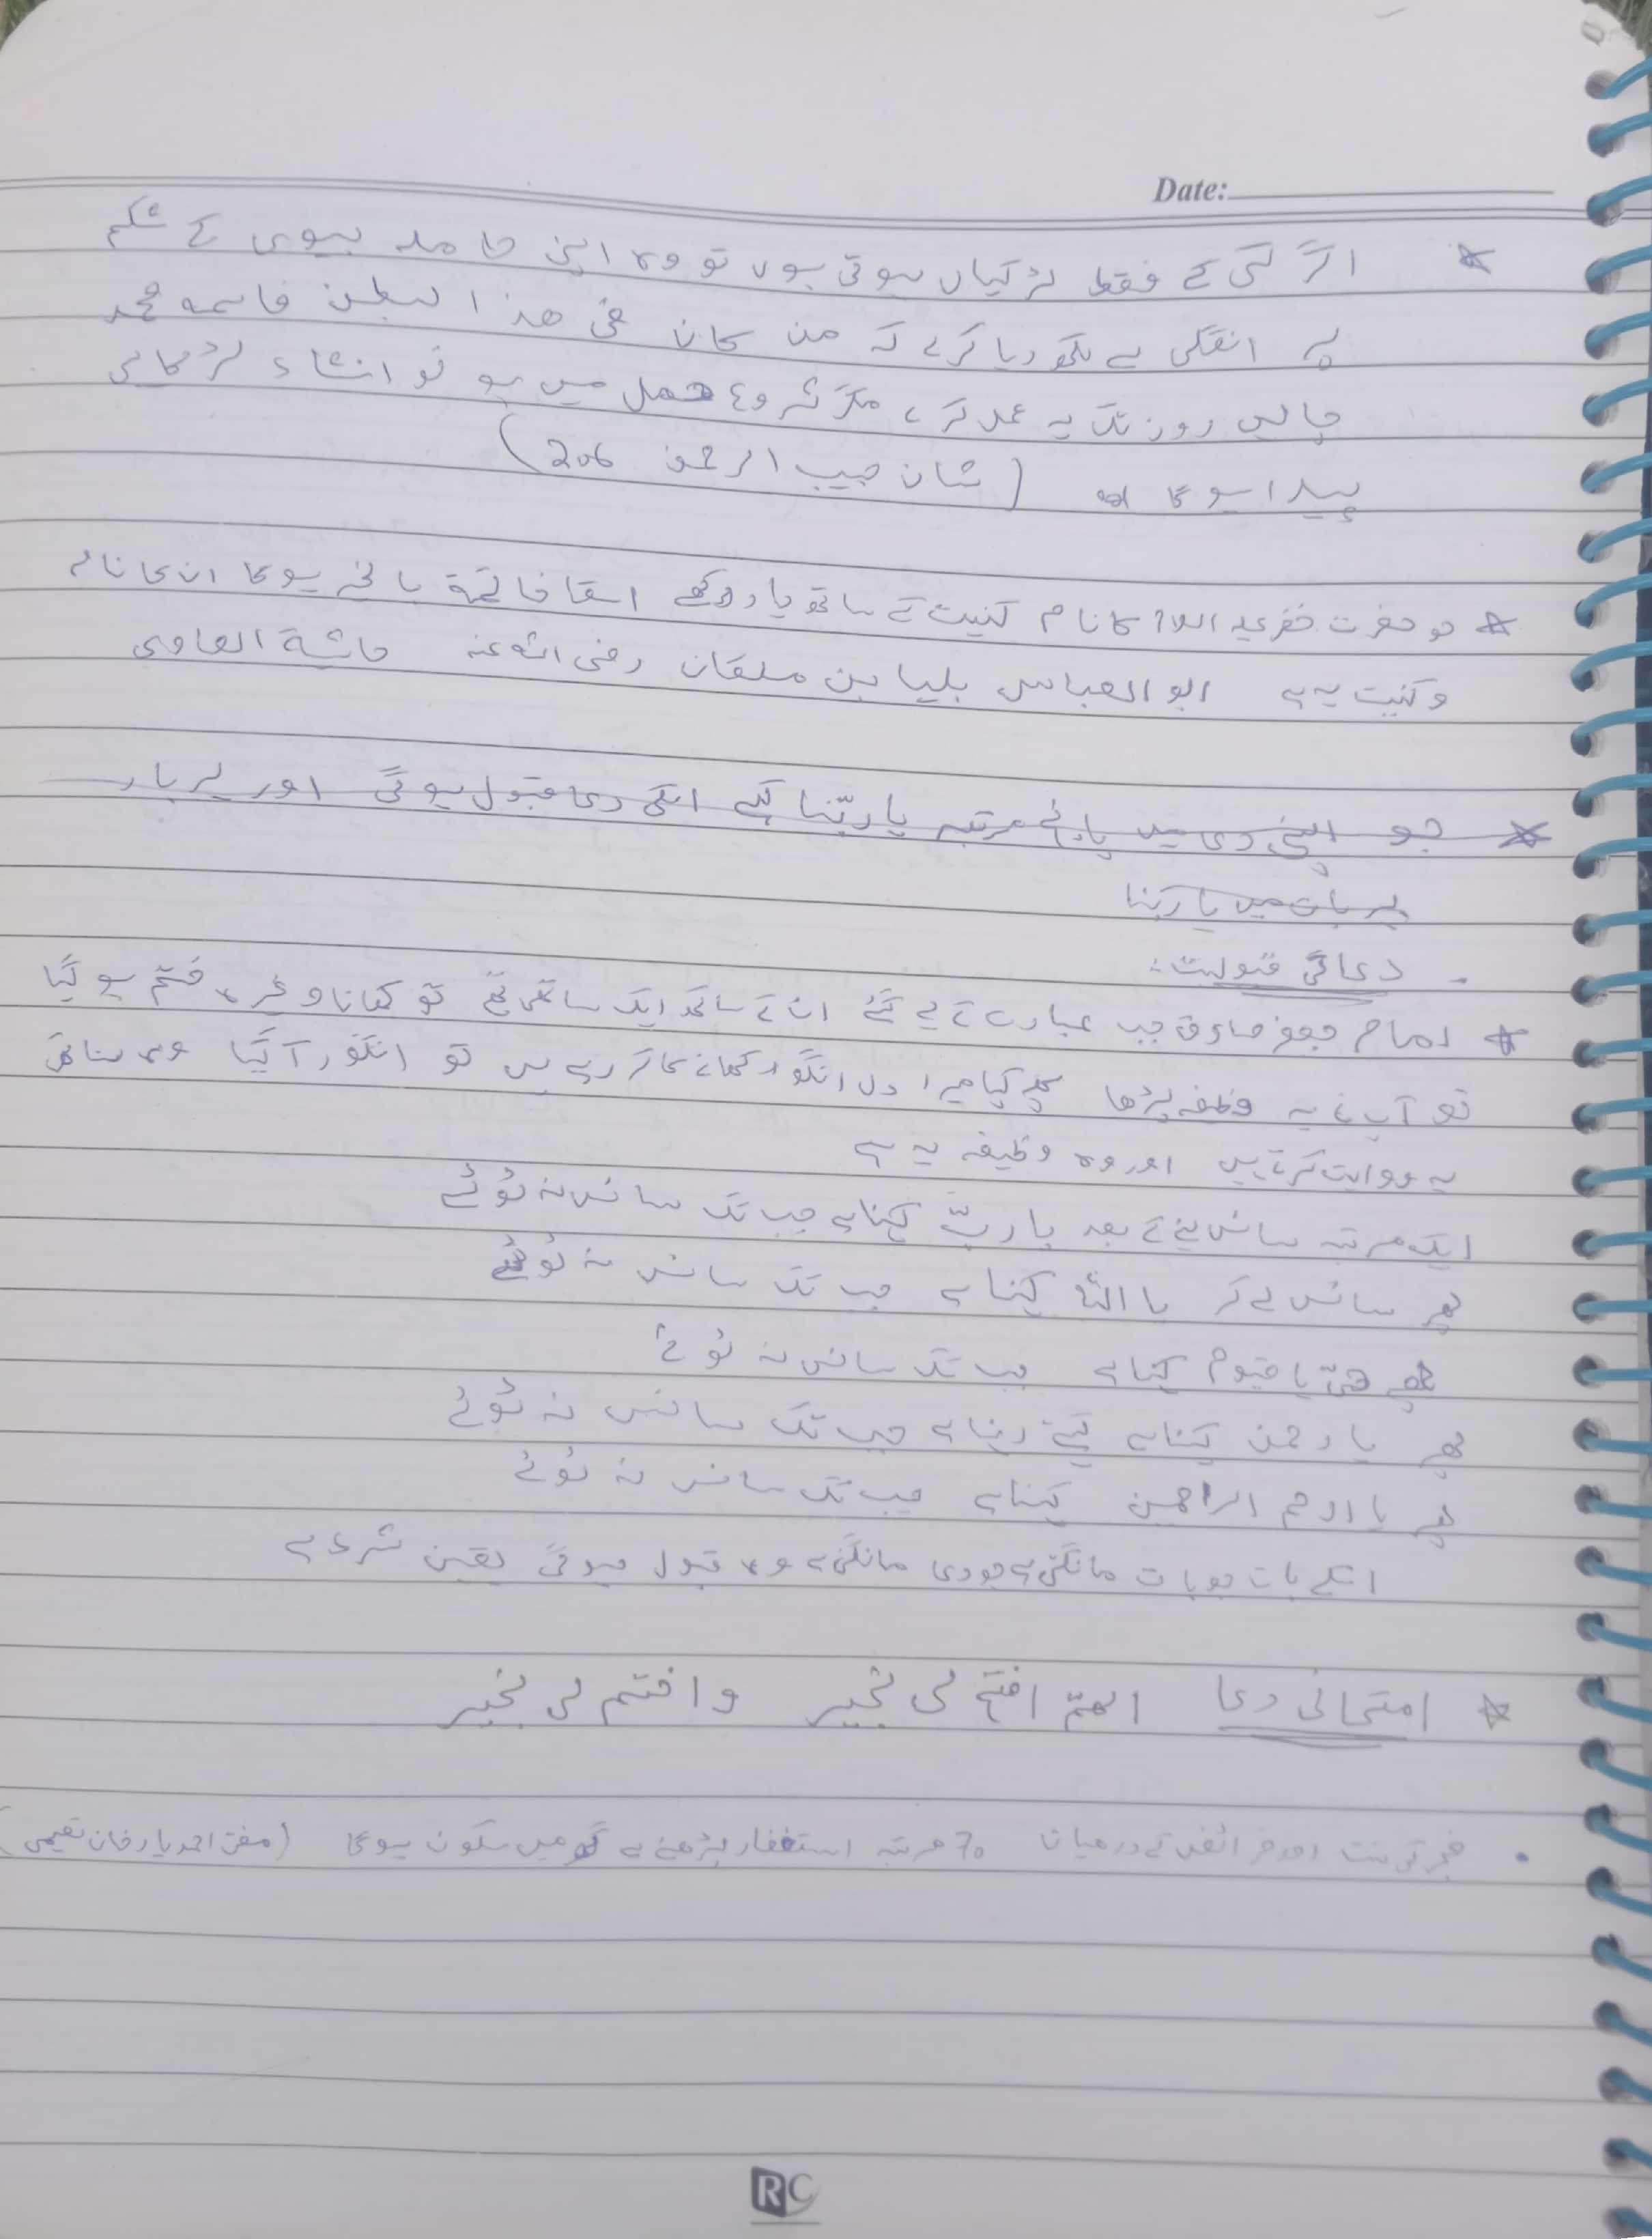 Date:
* اگر کسی کے فقط لڑکیاں ہوتی ہوں تو وہ اپنی حاملہ بیوی کے شکم
پہ انگلی سے لکھ دیا کرے کہ من کان فی ھذا البطن فاسمہ محمد
چالیس روز تک یہ عمل کرے، مگر شروع حمل میں ہو تو انشاء لڑکا ہی
پیدا ہو گا (شان حبیب الرحمن 206)
* جو حضرت خضر علیہ السلام کا نام کنیت کے ساتھ یاد رکھے اسکا خاتمۃ بالخیر ہوگا ان کا نام
و کنیت یہ ہے ابو العباس بلیا بن ملکان رضی اللہ عنہ حاشیۃ الصاوی
* جو اپنی دعا میں پانچ مرتبہ یا ربّنا کہے اسکی دعا قبول ہوگی اور ہر بار
ہر بات میں یا ربنا
- دعا کی قبولیت:
* امام جعفر صادق جب عبادت کے لیے گئے ان کے ساتھ ایک ساتھی تھے تو کھانا وغیرہ ختم ہو گیا
تو آپ نے یہ وظیفہ پڑھا پھر کہا میرا دل انگور کھانے کا کر رہے ہیں تو انگور آ گیا وہ ساتھی
یہ روایت کرتے ہیں اور وہ وظیفہ یہ ہے
ایک مرتبہ سانس لینے کے بعد یا ربّ کہنا ہے جب تک سانس نہ ٹوٹے
پھر سانس لے کر یا اللہ کہنا ہے جب تک سانس نہ ٹوٹے
پھر حیّ یا قیوم کہنا ہے جب تک سانس نہ ٹوٹے
پھر یا رحمن کہنا ہے کہتے رہنا ہے جب تک سانس نہ ٹوٹے
پھر یا ارحم الراحمین کہنا ہے جب تک سانس نہ ٹوٹے
اسکے بات جو بات مانگنی ہے جو دعا مانگنی ہے وہ قبول ہوگی یقین شرط ہے
* امتحانی دعا اللھمّ افتح لی بخیر و اختم لی بخیر
• فجر کی سنت اور فرائض کے درمیان 70 مرتبہ استغفار پڑھنے سے گھر میں سکون ہوگا (مفتی احمد یار خان نعیمی)
RC